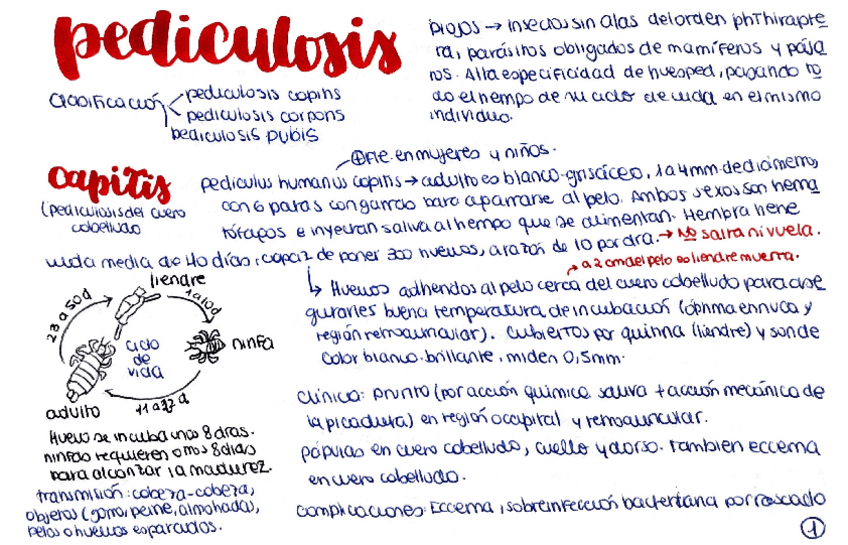 pediculosis
Clasificación
pediculosis capitis
pediculosis corporis
pediculosis pubis
piojos → insectos sin alas del orden phthirapte
ra, parásitos obligados de mamíferos y pája
ros. Alta especificidad de huésped, pasando to
do el tiempo de su ciclo de vida en el mismo
individuo.
capitis
(pediculosis del cuero
cabelludo
⊕ fte. en mujeres y niños.
pediculus humanus capitis → adulto es blanco-grisáceo, 1 a 4mm de diámetro,
con 6 patas con garras para aparrarse al pelo. Ambos sexos son hema
tófagos e inyectan saliva al tiempo que se alimentan. Hembra tiene
vida media de 40 días, capaz de poner 300 huevos, a razón de 10 por día. → No salta ni vuela.
→ a 2 cm del pelo es liendre muerta.
↳ Huevos adheridos al pelo cerca del cuero cabelludo para ase
gurarles buena temperatura de incubación (óptima en nuca y
región retroauricular). Cubiertos por quitina (liendre) y son de
color blanco-brillante, miden 0,5mm.
liendre
1 a 10d
ninfa
11 a 22 d
adulto
23 a 50d
ciclo
de
vida
Huevo se incuba unos 8 días.
ninfas requieren otros 8 días
para alcanzar la madurez.
transmisión: cabeza-cabeza,
objetos (gorro, peine, almohadas,
pelos o huevos esparcidos.
Clínica: prurito (por acción química saliva + acción mecánica de
la picadura) en región occipital y retroauricular.
pápulas en cuero cabelludo, cuello y dorso. También eccema
en cuero cabelludo.
Complicaciones: Eccema, sobreinfección bacteriana por rascado
1